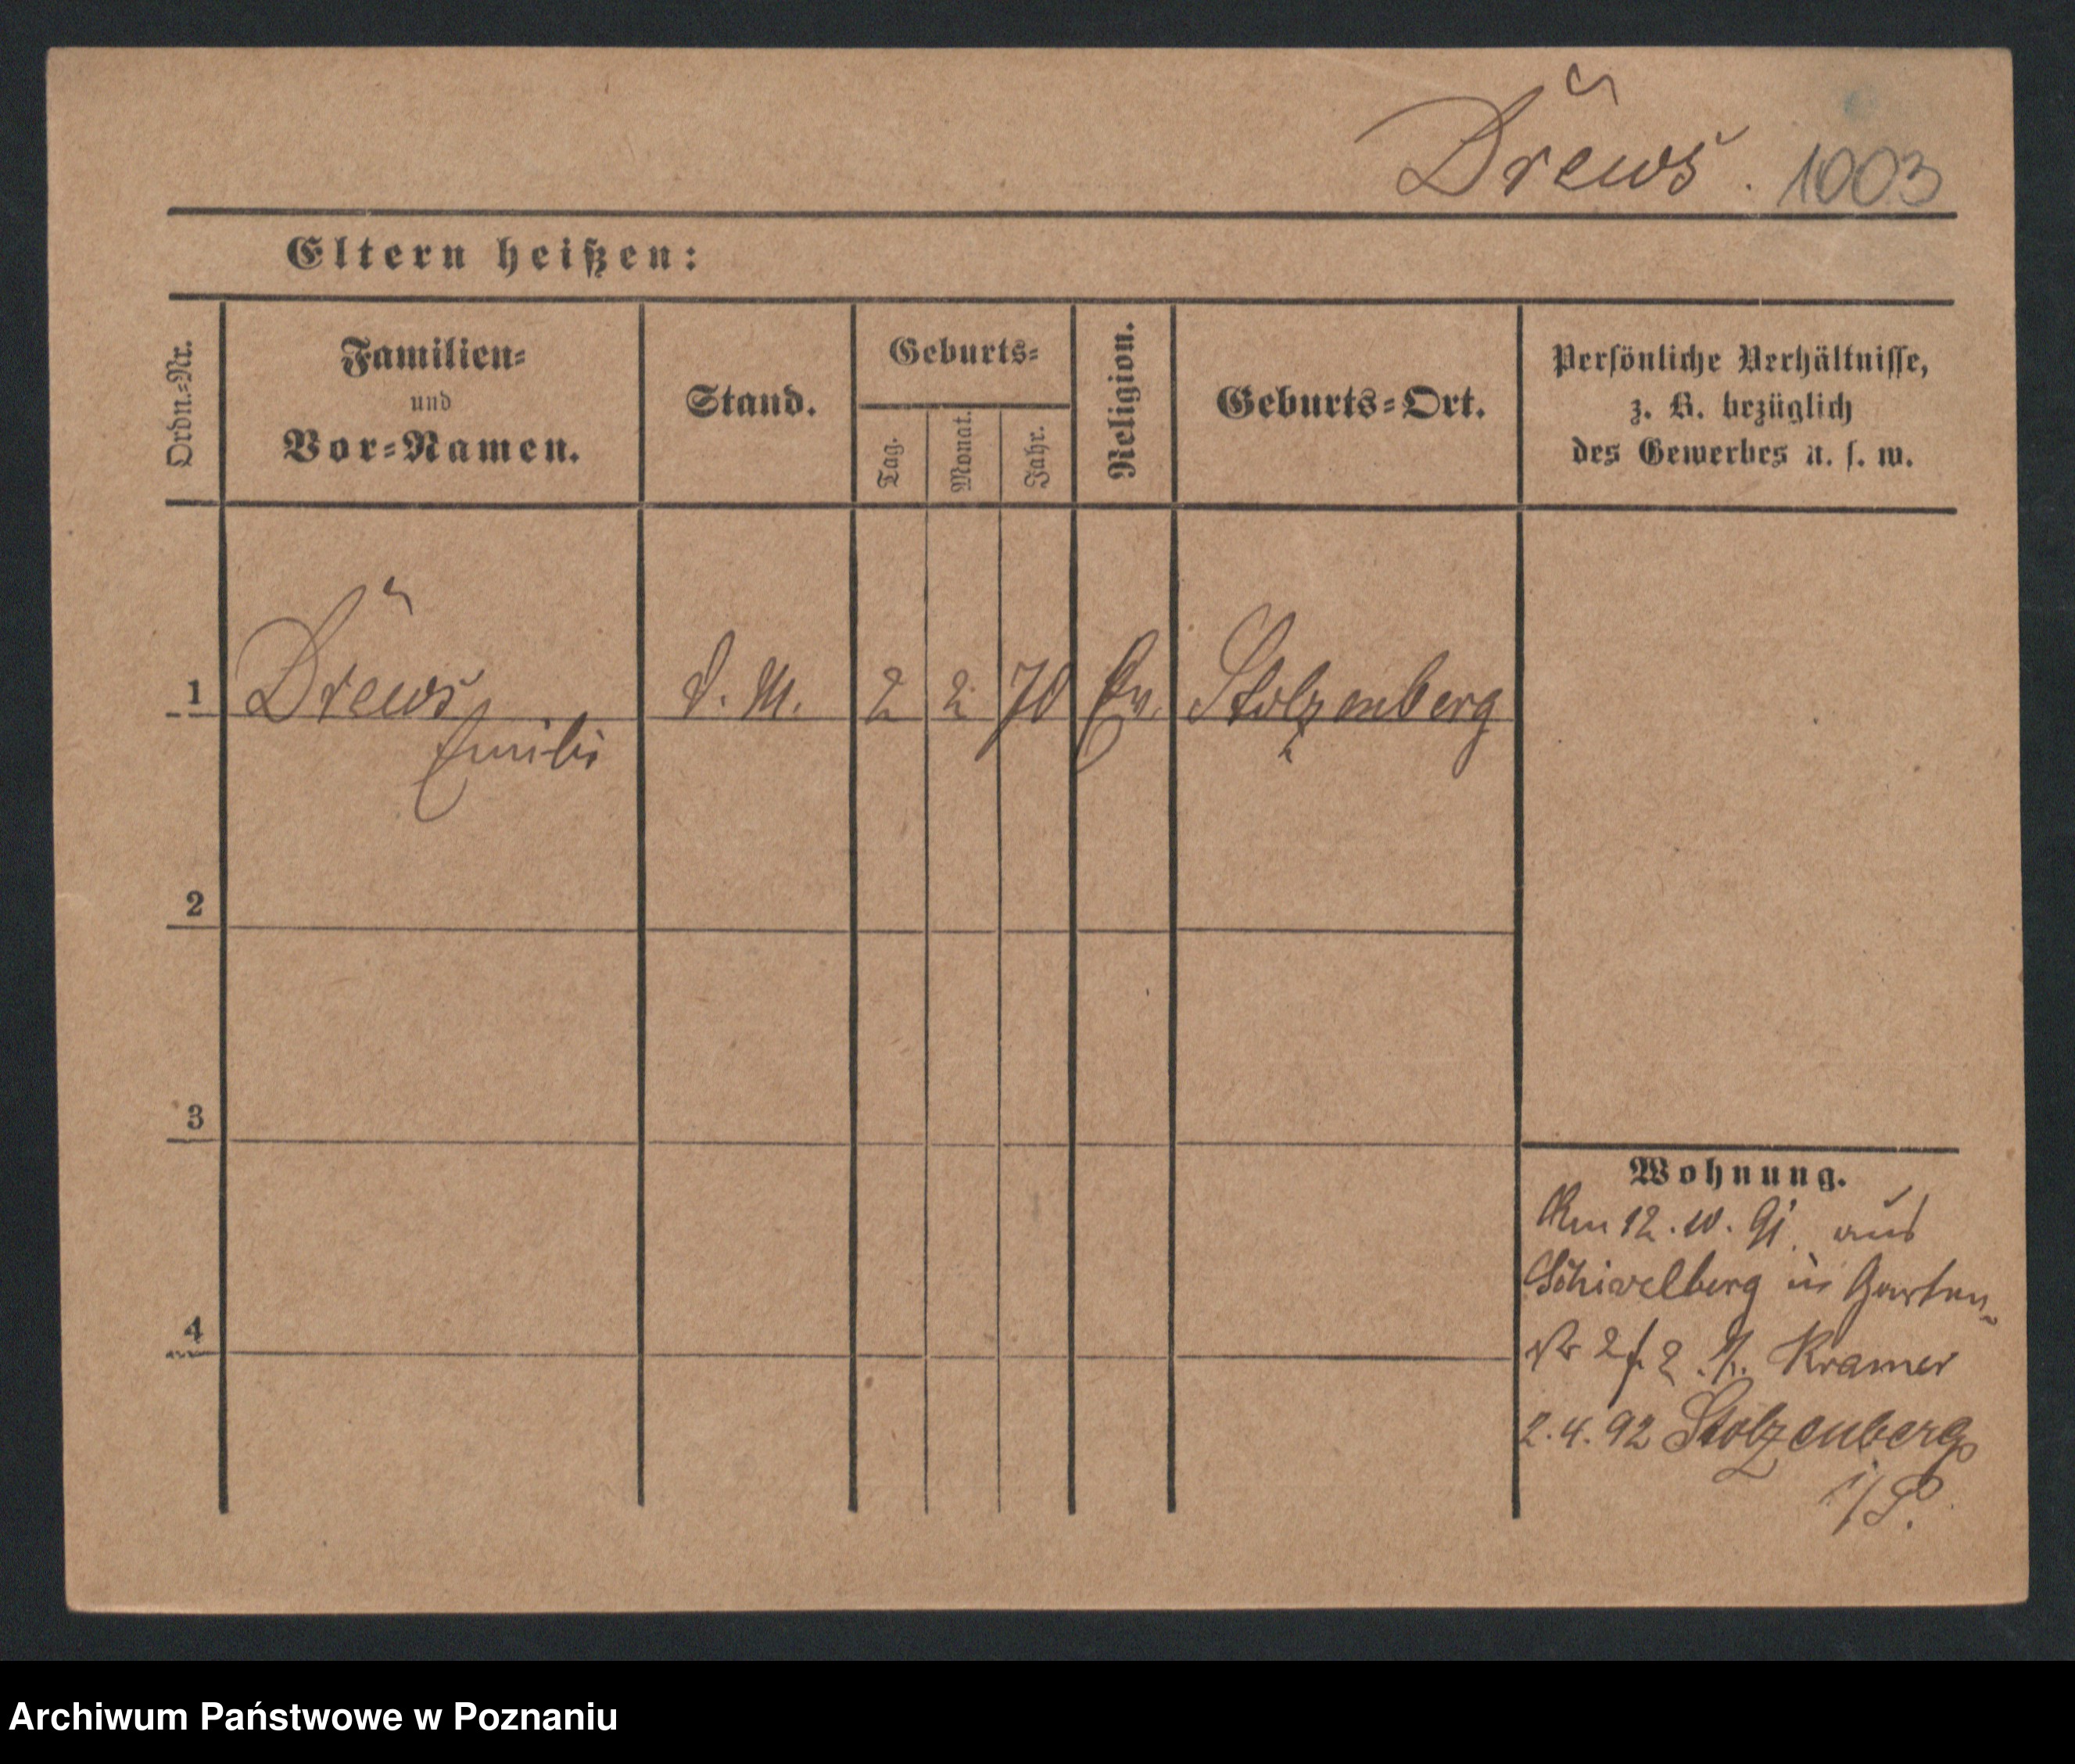 Drews. 1003
Eltern heißen:
Ordn.=Nr.
Familien=
und
Vor=Namen.
Stand.
Geburts=
Tag.
Monat.
Jahr.
Religion.
Geburts=Ort.
Persönliche Verhältnisse,
z. B. bezüglich
des Gewerbes u. s. w.
1 Drews D. M. 2 2 70 Ev. Stolzenberg
Emilie
2
3
4
Wohnung.
Am 12.10.91. aus
Schivelberg in Garten-
Nr 2 f 2 Kramer
2.4.92 Stolzenberg
i/P.
Archiwum Państwowe w Poznaniu